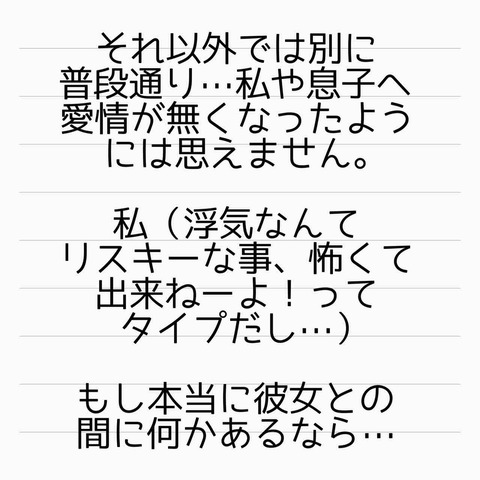 それ以外では別に
普段通り…私や息子へ
愛情が無くなったよう
には思えません。
私（浮気なんて
リスキーな事、怖くて
出来ねーよ！って
タイプだし…）
もし本当に彼女との
間に何かあるなら…